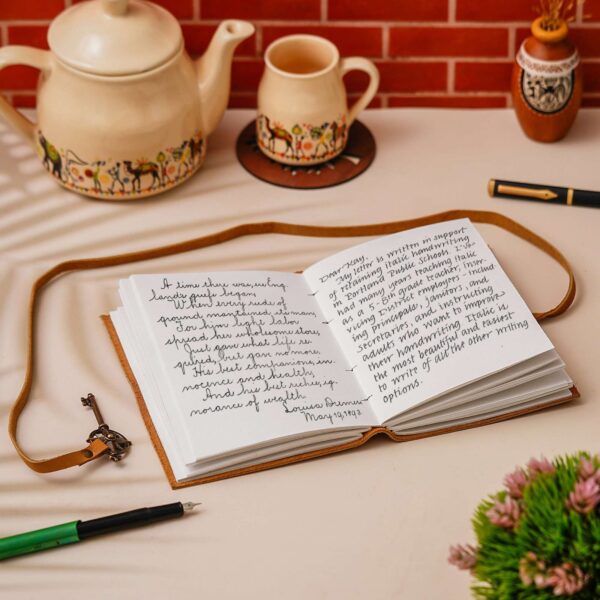 A time there was, ere Eng-
lands griefs began,
When every rude of
ground maintained its man,
For him light labor
spread her wholesome store,
Just gave what life re-
quired, but gave no more,
His best companions, in-
nocence and health,
And his best riches, ig-
norance of wealth.
Louisa
May 19, 1893
Dear Kay,
My letter is written in support
of retaining italic handwriting
in Portland Public Schools. I've
had many years teaching italic
as a 5-8th grade teacher, inser-
vicing District employees - includ-
ing principals, janitors, and
secretaries, and instructing
adults who want to improve
their handwriting. Italic is
the most beautiful and easiest
to write of all the other writing
options.